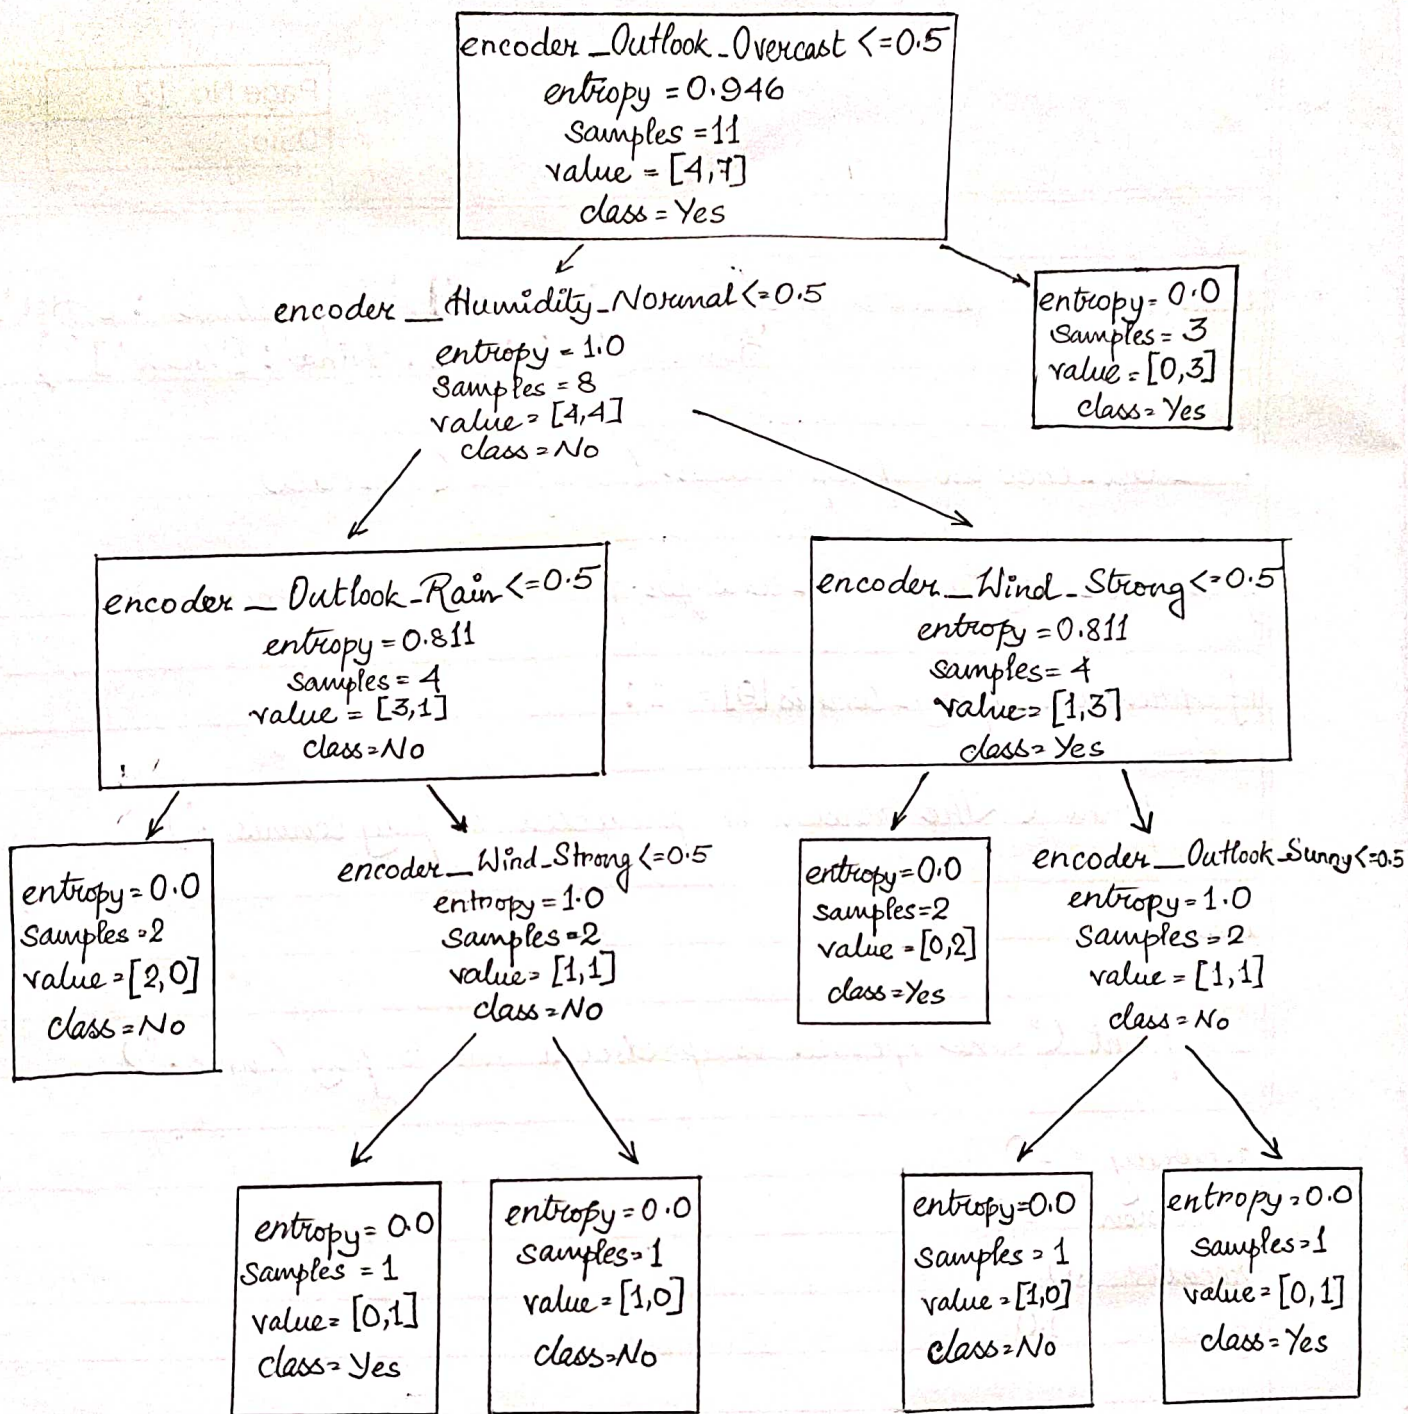 encoder_Outlook_Overcast <=0.5
entropy = 0.946
samples =11
value = [4,7]
class = Yes
encoder__Humidity_Normal<=0.5
entropy = 1.0
samples = 8
value = [4,4]
class = No
entropy = 0.0
samples = 3
value = [0,3]
class = Yes
encoder__Outlook_Rain<=0.5
entropy = 0.811
samples = 4
value = [3,1]
class = No
encoder__Wind_Strong<=0.5
entropy = 0.811
samples = 4
value = [1,3]
class = Yes
entropy = 0.0
samples = 2
value = [2,0]
class = No
encoder__Wind_Strong<=0.5
entropy = 1.0
samples = 2
value = [1,1]
class = No
entropy = 0.0
samples = 2
value = [0,2]
class = Yes
encoder__Outlook_Sunny<=0.5
entropy = 1.0
samples = 2
value = [1,1]
class = No
entropy = 0.0
samples = 1
value = [0,1]
class = Yes
entropy = 0.0
samples = 1
value = [1,0]
class = No
entropy = 0.0
samples = 1
value = [1,0]
class = No
entropy = 0.0
samples = 1
value = [0,1]
class = Yes
Page No. 12
Date